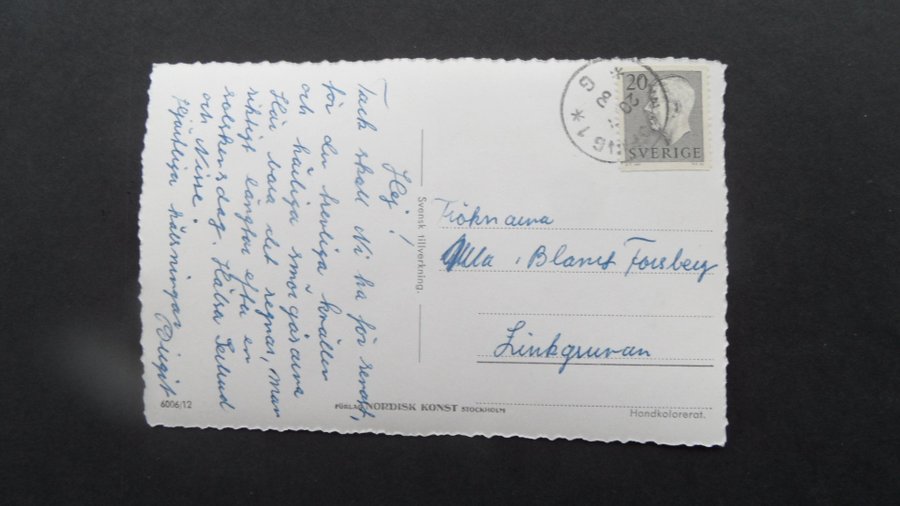 Hej!
Tack skall Ni ha för senast,
för den trevliga kvällen
och härliga smörgåsarna
Här bara det regnar, man
riktigt längtar efter en
solskensdag. Hälsa
och Nisse.
Hjärtliga hälsningar Birgit
6006/12
Svensk tillverkning.
FÖRLAG NORDISK KONST STOCKHOLM
20
SVERIGE
Fröknarna
Ulla Forsberg
Zinkgruvan
Handkolorerat.